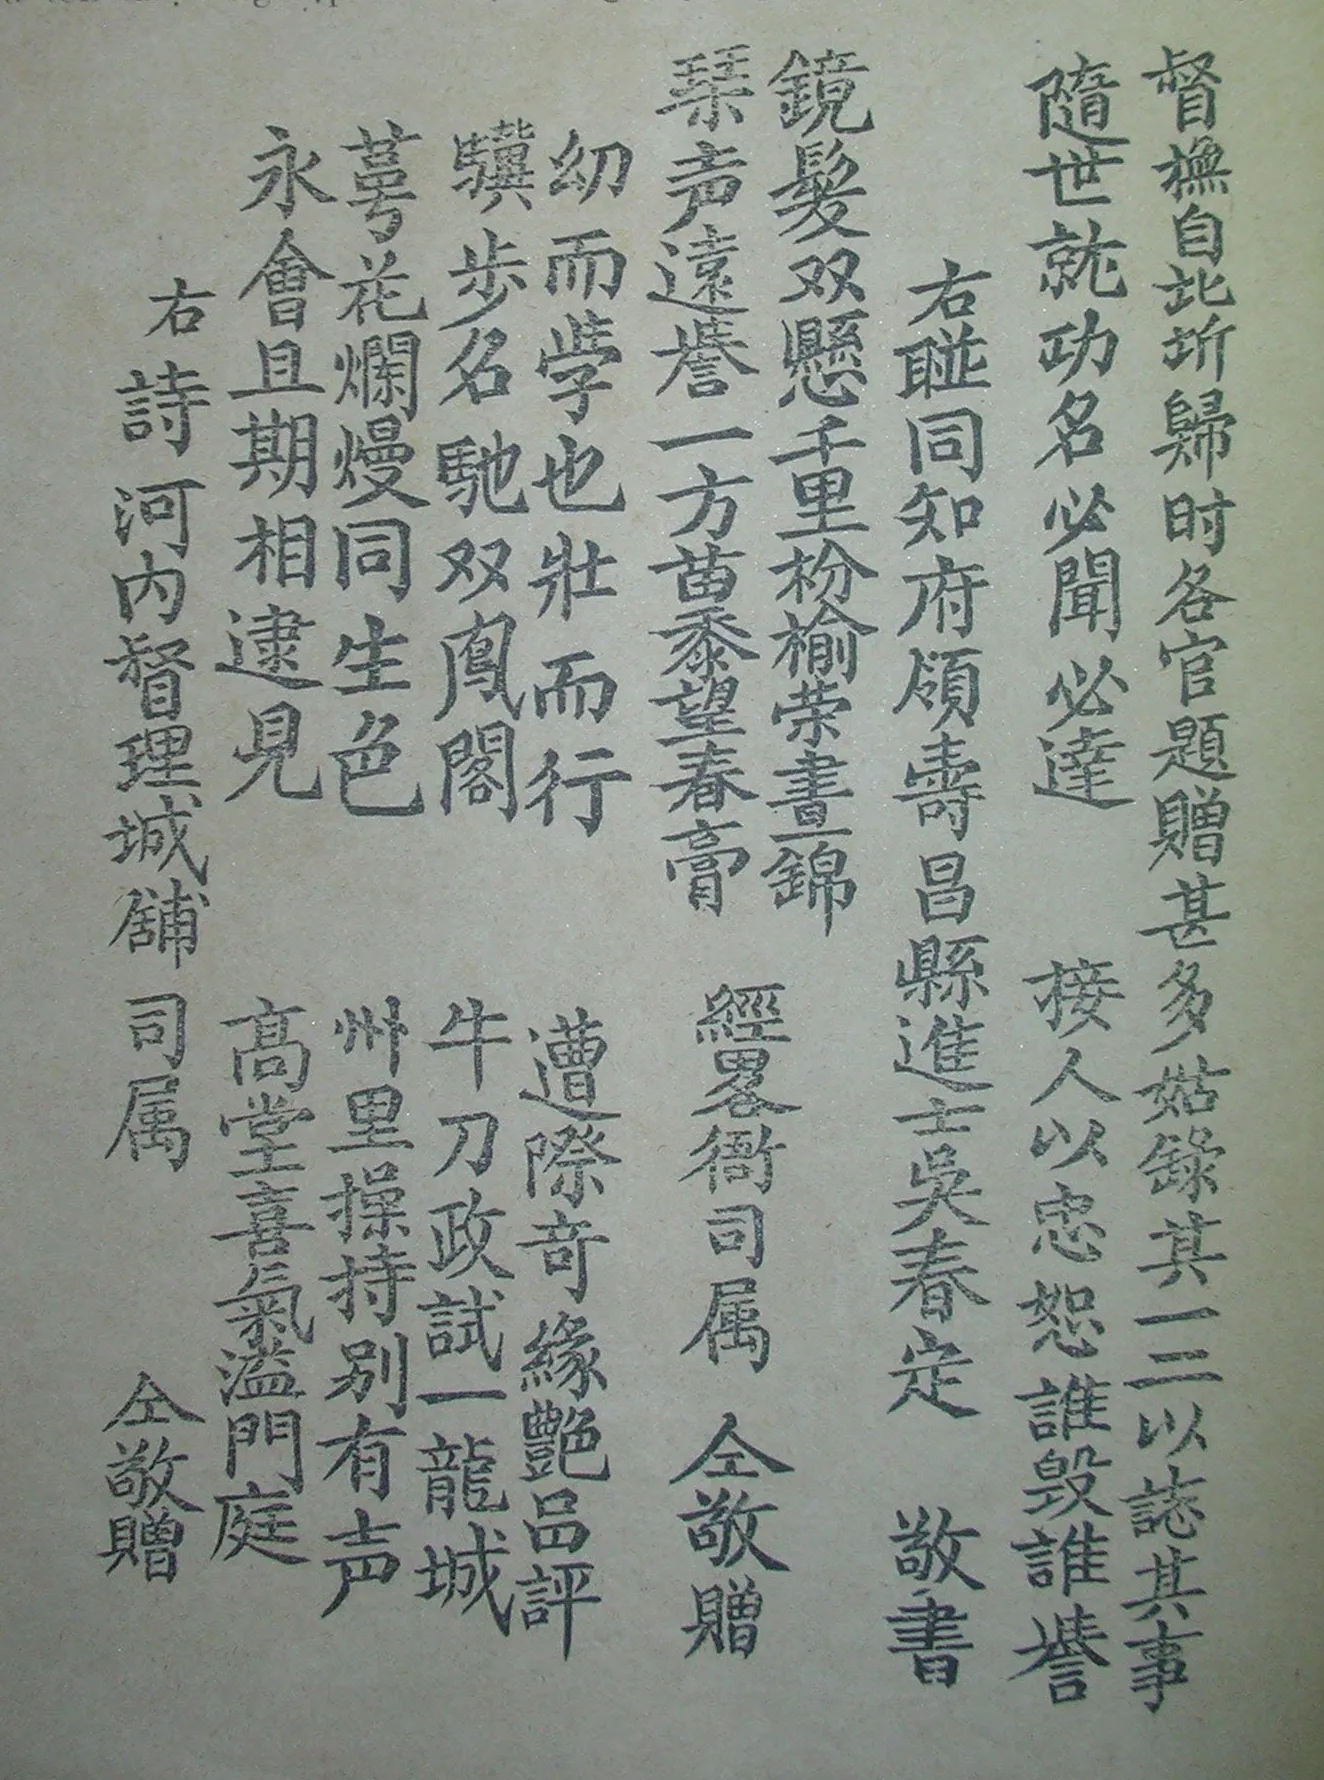 督橅自此圻歸时各官題贈甚多姑錄其一二以誌其事
隨世就功名必聞必達 接人以忠恕誰毀誰誉
右聯同知府領壽昌縣進士吳春定 敬書
鏡髮双懸千里枌榆荣晝錦
琹声遠誉一方苗黍望春膏 經畧衙司属 仝敬贈
幼而学也壯而行 遭際竒緣艷邑評
驥步名馳双鳯閣 牛刀政試一龍城
萼花爛熳同生色 州里操持别有声
永會且期相逮見 高堂喜氣溢門庭
右詩河内督理城舖司属 仝敬贈